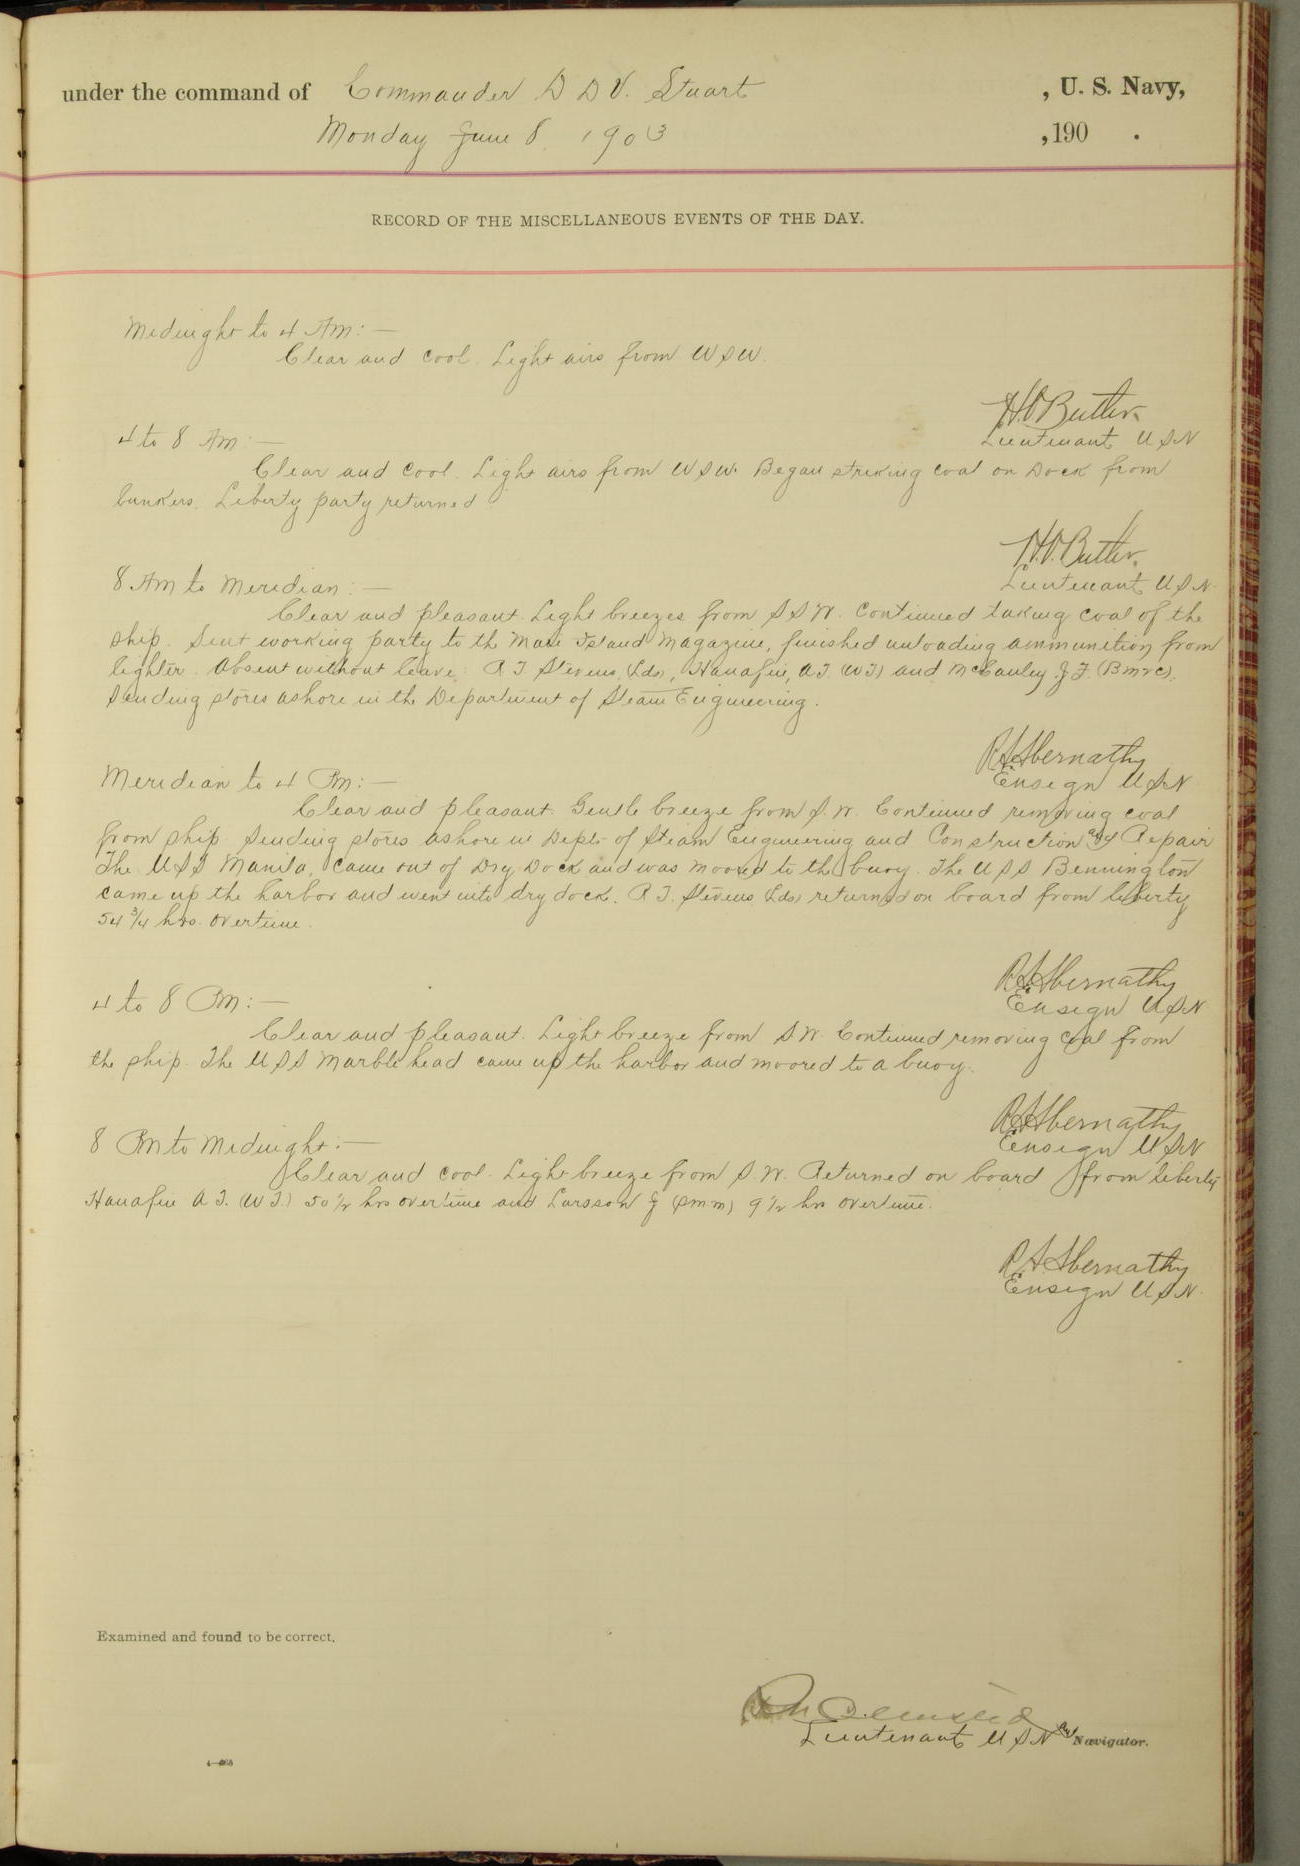 under the command of Commander D D V. Stuart , U. S. Navy,
Monday June 8. 1903 , 190 .
RECORD OF THE MISCELLANEOUS EVENTS OF THE DAY.
Midnight to 4 Am: —
Clear and cool. Light airs from W S W.
H.V. Butler
Lieutenant U S N
4 to 8 Am: —
Clear and cool. Light airs from W S W. Began striking coal on Dock from
bunkers. Liberty party returned
H.V. Butler.
Lieutenant U S N.
8 Am to Meridian: —
Clear and pleasant. Light breezes from S S W. Continued taking coal of the
ship. Sent working party to the Mare Island Magazine, finished unloading ammunition from
lighter. Absent without leave: R T Stevens (Lds), Hanafin, A.J. (W T) and McCauley J. F. (Bmrc).
Sending stores ashore in the Department of Steam Engineering.
R S Abernathy
Ensign U S N
Meridian to 4 Pm: —
Clear and pleasant. Gentle breeze from S. W. Continued removing coal
from ship. Sending stores ashore in Depts. of Steam Engineering and Construction and Repair
The U S S Manila, came out of Dry Dock and was moored to the buoy. The U S S Bennington
came up the harbor and went into dry dock. R T. Stevens (Lds) returned on board from liberty
54 3/4 hrs. overtime.
R S Abernathy
Ensign U S N
4 to 8 Pm: —
Clear and pleasant. Light breeze from S W. Continued removing coal from
the ship. The U S S Marblehead came up the harbor and moored to a buoy.
R S Abernathy
Ensign U S N
8 Pm to Midnight: —
Clear and cool. Light breeze from S. W. Returned on board from liberty
Hanafin A J. (W T.) 50 1/2 hrs overtime and Larsson J (Smm) 9 1/2 hrs overtime.
R S Abernathy
Ensign U S N.
Examined and found to be correct.
Lieutenant U S N and Navigator.